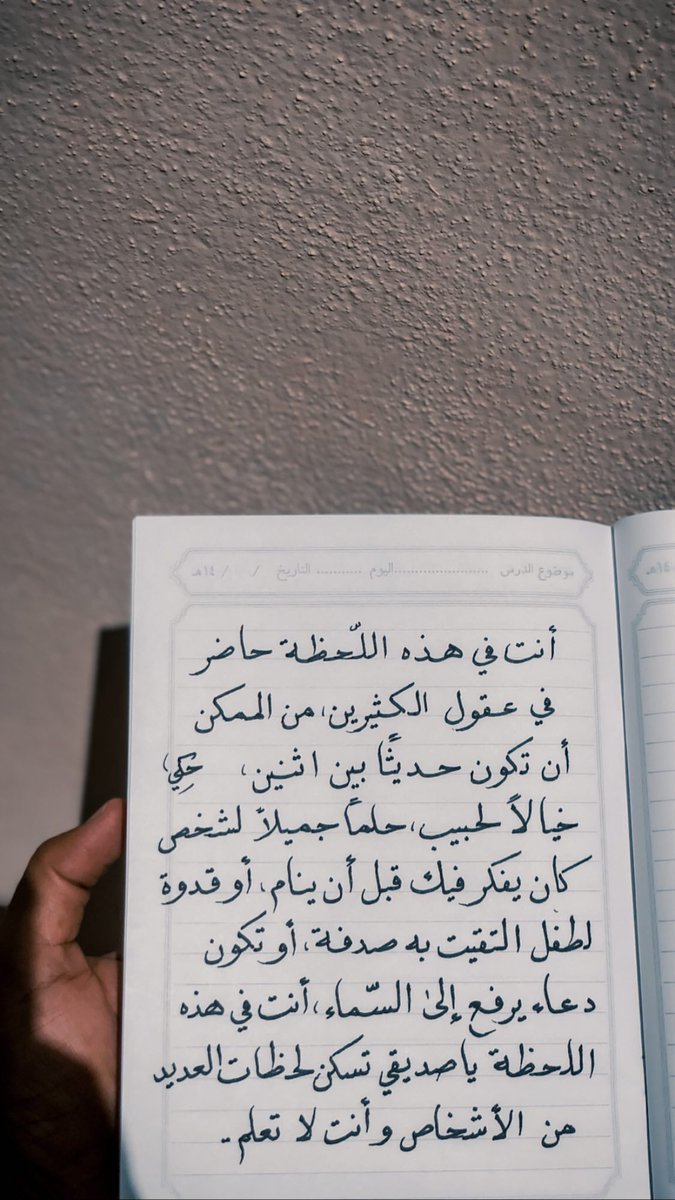 موضوع الدرس ........................ اليوم ........... التاريخ / / ١٤هـ
أنت في هذه اللّحظة حاضر
في عقول الكثيرين، من الممكن
أن تكون حديثًا بين اثنين،
خيالاً لحبيب، حلماً جميلاً لشخص
كان يفكر فيك قبل أن ينام، أو قدوة
لطفل التقيت به صدفة، أو تكون
دعاء يرفع إلىٰ السّماء، أنت في هذه
اللحظة يا صديقي تسكن لحظات العديد
من الأشخاص و أنت لا تعلم.